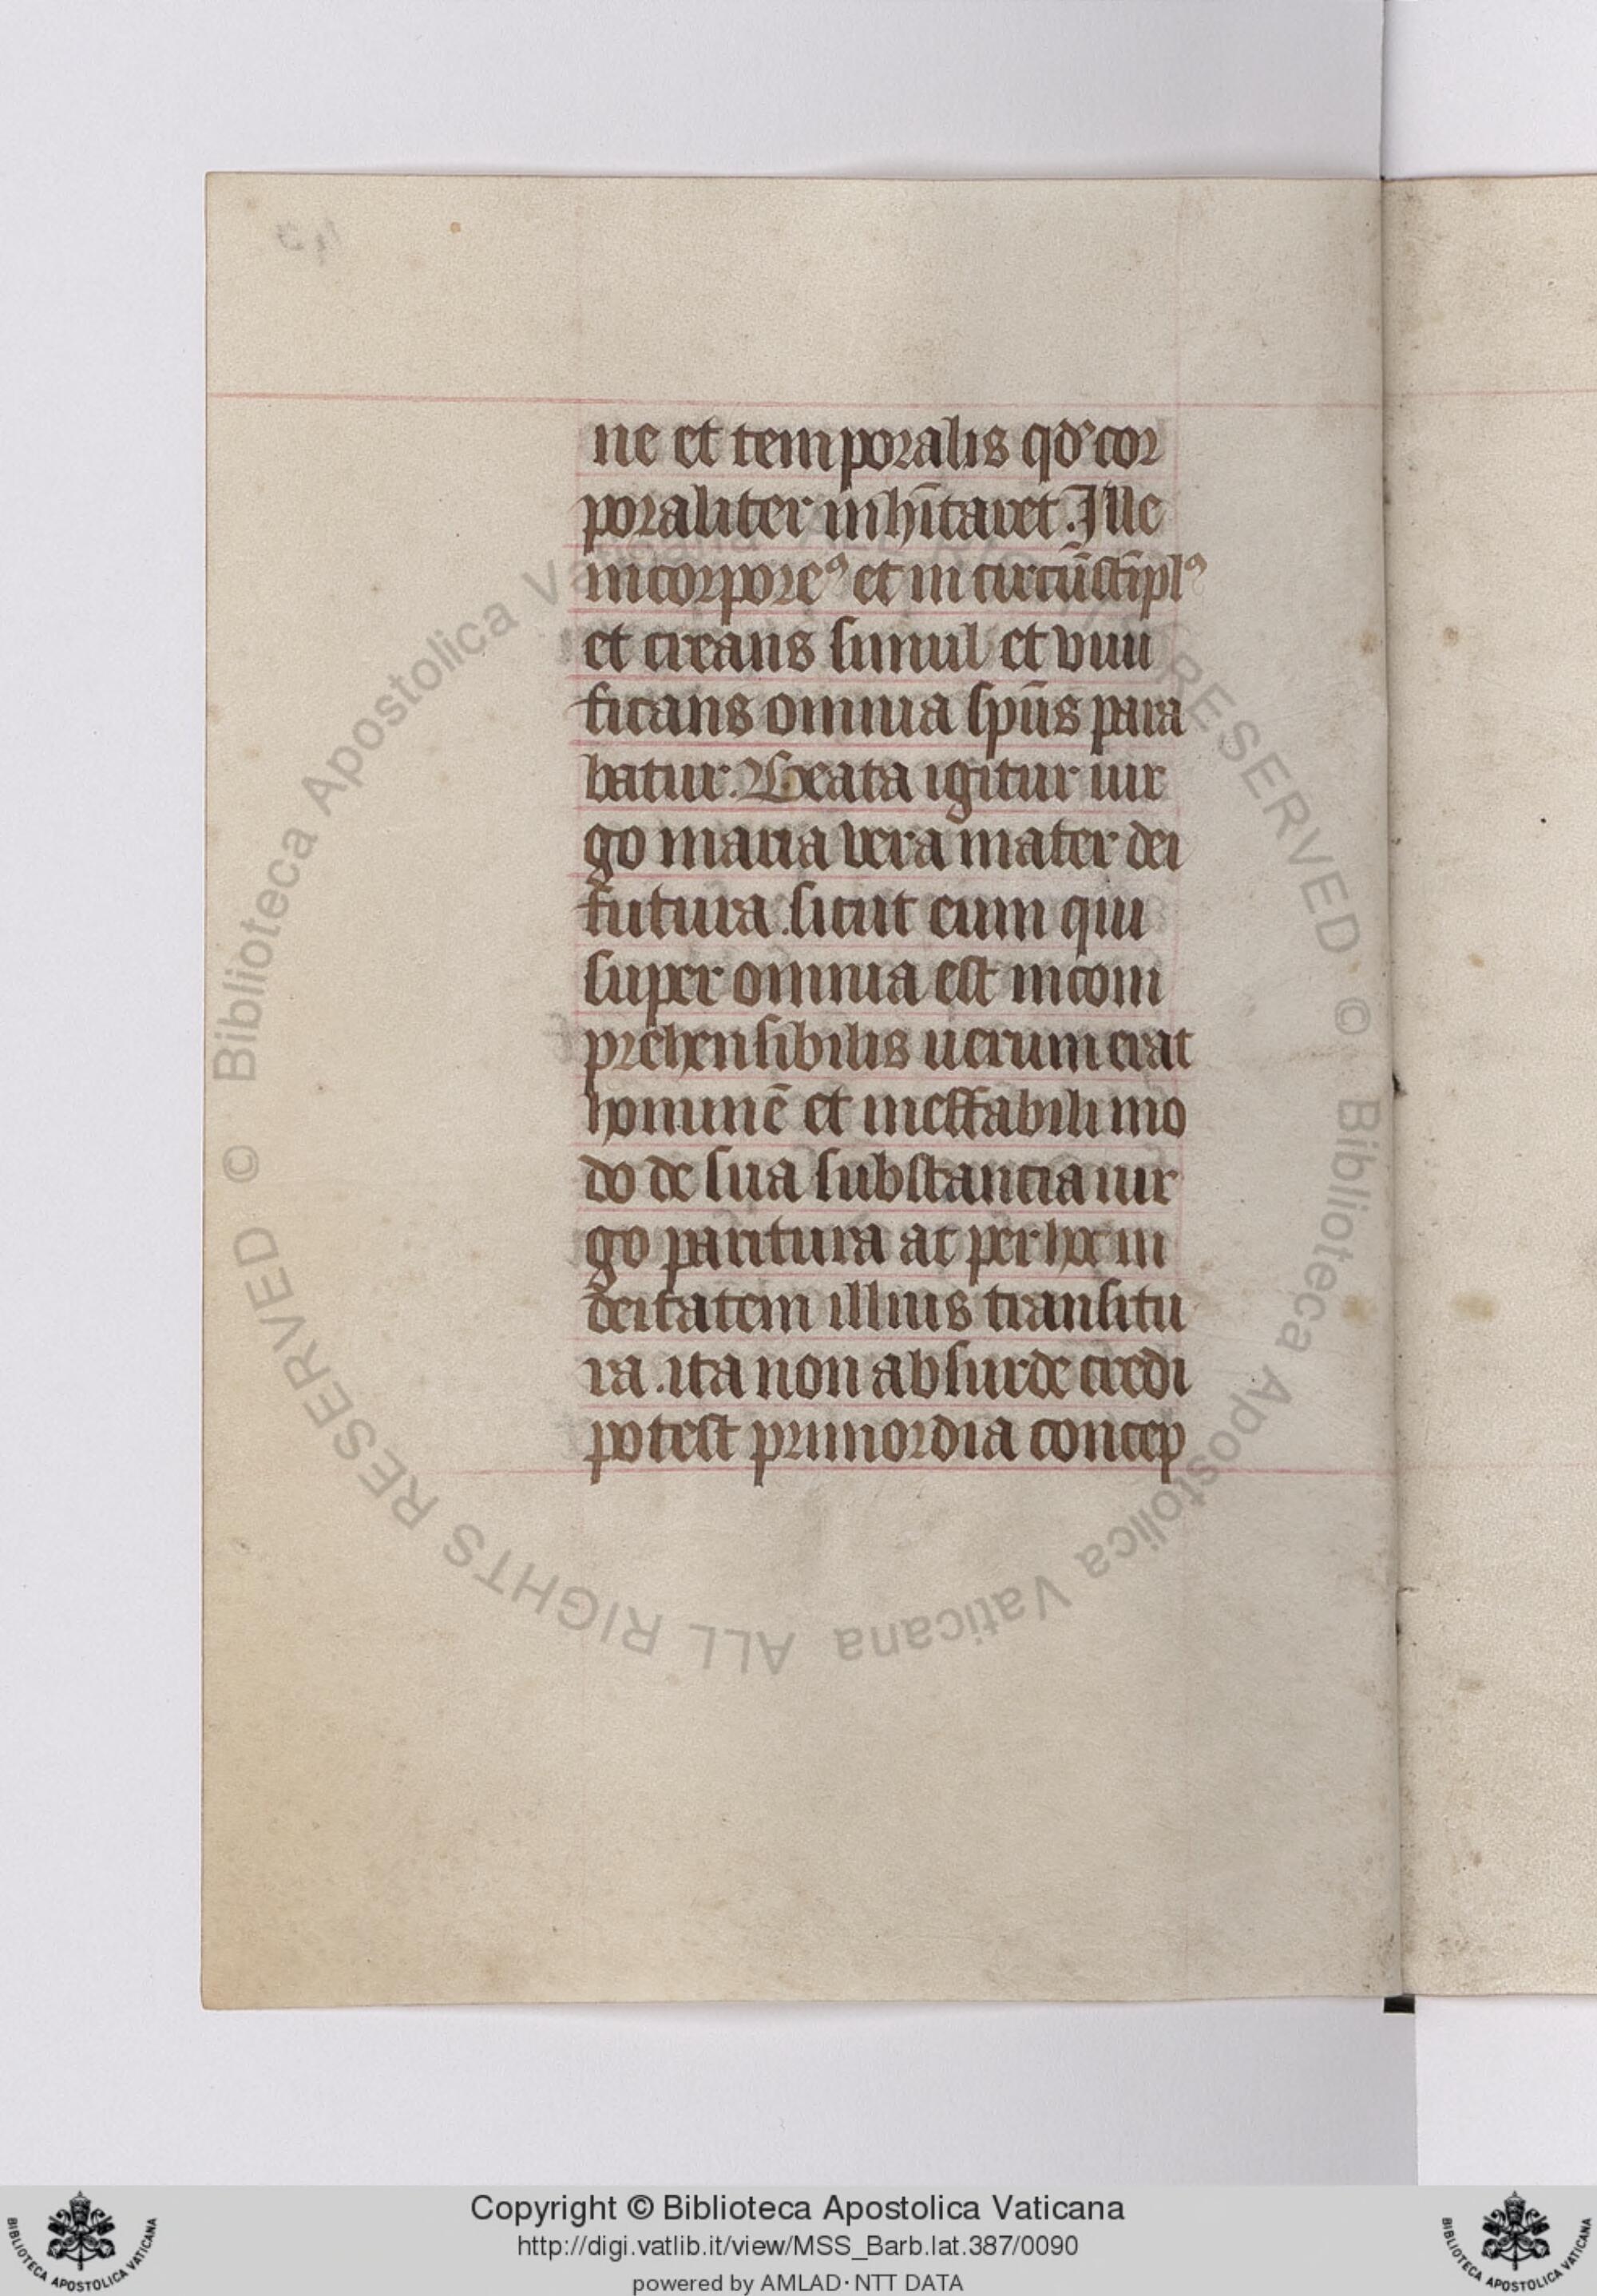 ne et temporalis qd' cor
poraliter inhitaret. Ille
incorpore⁹ et in circūscipl⁹
et creans simul et viui
ficans omnia spūs para
batur. Beata igitur uir
go maria vera mater dei
futura. sicut eum qui
super omnia est incom
prehensibilis uerum erat
hominē et ineffabili mo
do de sua substancia uir
go paritura ac per hoc in
deitatem illius transitu
ra. ita non absurde credi
potest primordia concep
© Biblioteca Apostolica Vaticana ALL RIGHTS RESERVED
© Biblioteca Apostolica Vaticana ALL RIGHTS RESERVED
Copyright © Biblioteca Apostolica Vaticana
http://digi.vatlib.it/view/MSS_Barb.lat.387/0090
powered by AMLAD·NTT DATA
BIBLIOTECA APOSTOLICA VATICANA
BIBLIOTECA APOSTOLICA VATICANA